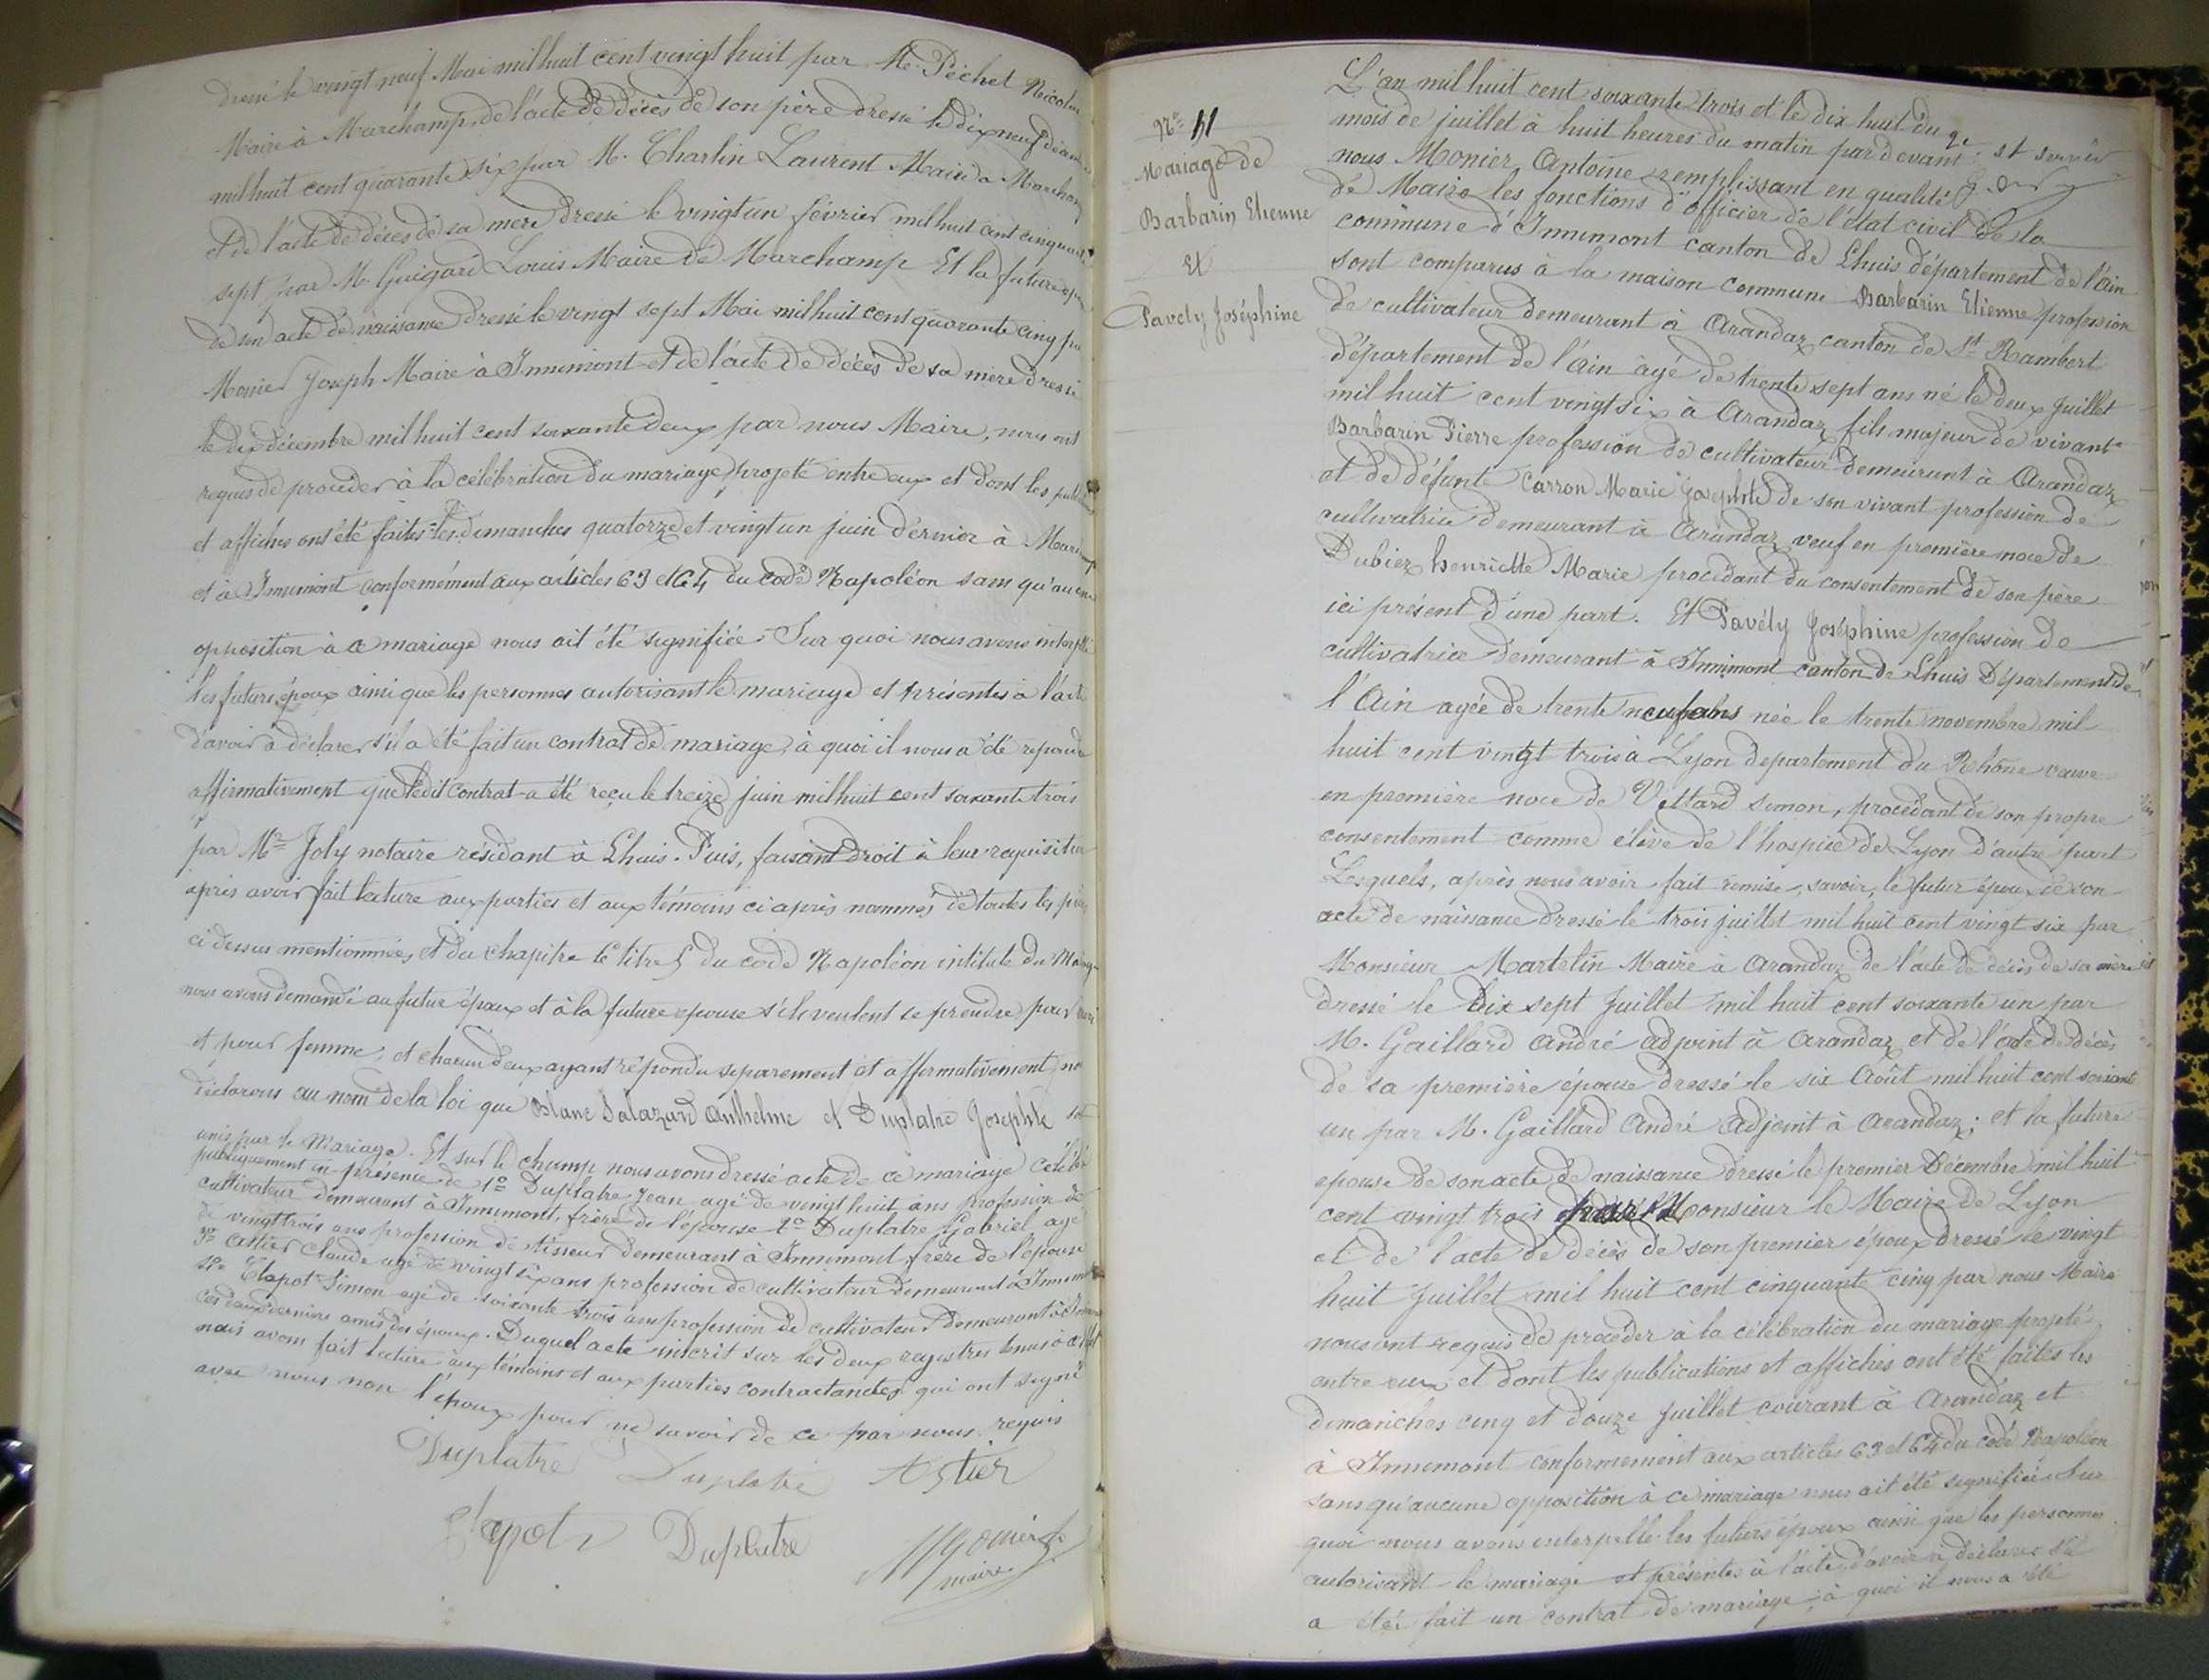 dressé le vingt neuf Mai mil huit cent vingt huit par M. Péchet Nicolas
Maire à Marchamp, de l'acte de décès de son père dressé le dix neuf
mil huit cent quarante six par M. Charlin Laurent Maire à Marchamp
et de l'acte de décès de sa mère dressé le vingt un février mil huit cent cinquante
sept par M. Guigard Louis Maire de Marchamp Et la future épouse
de son acte de naissance dressé le vingt sept Mai mil huit cent quarante cinq par
Monier Joseph Maire à Innimont et de l'acte de décès de sa mère dressé
le dix décembre mil huit cent soixante deux par nous Maire, nous ont
requis de procéder à la célébration du mariage projeté entre eux et dont les
et affiches ont été faites les dimanches quatorze et vingt un juin dernier à
et à Innimont conformément aux articles 63 et 64 du code Napoléon sans qu'aucune
opposition à ce mariage nous ait été signifiée. Sur quoi nous avons interpellé
les futurs époux ainsi que les personnes autorisant le mariage et présentes à l'acte
d'avoir à déclarer s'il a été fait un contrat de mariage, à quoi il nous a été répondu
affirmativement que ledit contrat a été reçu le treize juin mil huit cent soixante trois
par Me Joly notaire résidant à Lhuis. Puis, faisant droit à leur réquisition
après avoir fait lecture aux parties et aux témoins ci après nommés de toutes les pièces
ci dessus mentionnées et du chapitre 6 titre 5 du code Napoléon intitulé du Mariage
nous avons demandé au futur époux et à la future épouse s'ils veulent se prendre pour mari
et pour femme, et chacun d'eux ayant répondu séparement et affirmativement, nous
déclarons au nom de la loi que Blanc Salazard Anthelme et Duplatre Josephte sont
unis par le Mariage. Et sur le champ nous avons dressé acte de ce mariage célébré
publiquement en présence de 1o Duplatre Jean agé de vingt huit ans profession de
cultivateur demeurant à Innimont, frère de l'épouse 2o Duplatre Gabriel agé
de vingt trois ans profession de tisseur demeurant à Innimont frère de l'épouse
3o Astier Claude agé de vingt six ans profession de cultivateur demeurant à Innimont
4o Clapot Simon agé de soixante trois ans profession de cultivateur demeurant à Innimont
ces deux derniers amis des époux. Duquel acte inscrit sur les deux registres tenus à cet effet
nous avons fait lecture aux témoins et aux parties contractantes qui ont signé
avec nous non l'époux pour ne savoir de ce par nous requis
Duplatre Duplatre Astier
Clapot Duplatre Monier
maire
No 11
Mariage de
Barbarin Etienne
Et
Pavely Joséphine
L'an mil huit cent soixante trois et le dix huit du
mois de juillet à huit heures du matin par devant
nous Monier Antoine remplissant en qualité
de Maire les fonctions d'officier de l'état civil de la
commune d'Innimont canton de Lhuis département de l'Ain
sont comparus à la maison commune Barbarin Etienne profession
de cultivateur demeurant à Arandaz canton de St Rambert
département de l'Ain âgé de trente sept ans né le deux Juillet
mil huit cent vingt six à Arandaz fils majeur de vivant
Barbarin Pierre profession de cultivateur demeurant à Arandaz
et de défunte Carron Marie Josephte de son vivant profession de
cultivatrice demeurant à Arandaz veuf en première noce de
Dubiez henriette Marie procédant du consentement de son père
ici présent d'une part. Et Pavély Joséphine profession de
cultivatrice demeurant à Innimont canton de Lhuis Département de
l'Ain agée de trente neuf ans née le trente novembre mil
huit cent vingt trois à Lyon departement du Rhône veuve
en première noce de Vettard Simon, procédant de son propre
consentement comme élève de l'hospice de Lyon d'autre part
Lesquels, après nous avoir fait remise, savoir, le futur époux de son
acte de naissance dressé le trois juillet mil huit cent vingt six par
Monsieur Martelin Maire à Arandaz de l'acte de décès de sa mère
dressé le dix sept Juillet mil huit cent soixante un par
M. Gaillard André adjoint à Arandaz et de l'acte de décès
de sa première épouse dressé le six Août mil huit cent soixante
un par M. Gaillard André Adjoint à Arandaz; et la future
epouse de son acte de naissance dressé le premier Décembre mil huit
cent vingt trois par Monsieur le Maire de Lyon
et de l'acte de décès de son premier époux dressé le vingt
huit Juillet mil huit cent cinquante cinq par nous Maire
nous ont requis de procéder à la célébration du mariage projeté
entre eux et dont les publications et affiches ont été faites les
dimanches cinq et douze Juillet courant à Arandaz et
à Innimont conformement aux articles 63 et 64 du code Napoléon
sans qu'aucune opposition à ce mariage nous ait été signifiée Sur
quoi nous avons interpellé les futurs époux ainsi que les personnes
autorisant le mariage et présentes à l'acte, d'avoir à déclarer s'il
a été fait un contrat de mariage, à quoi il nous a été